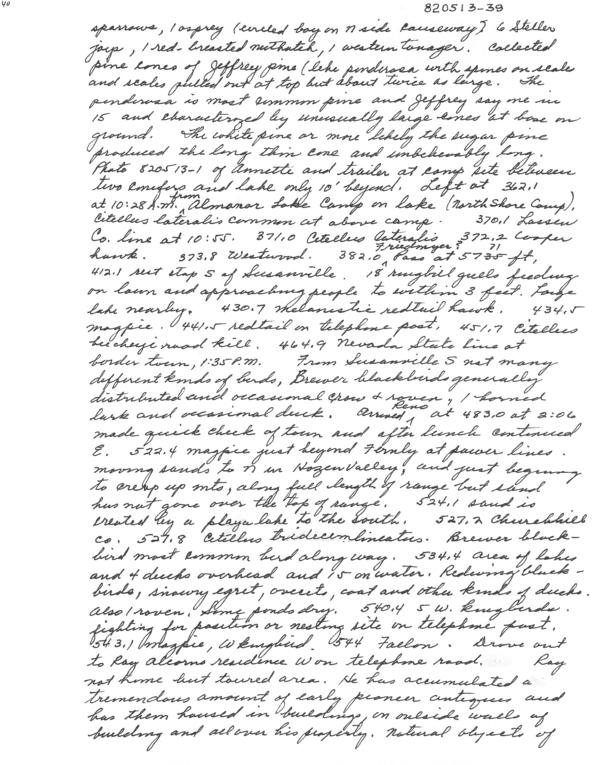 40
820513-39
sparrows, 1 osprey (circled bay on N side causeway) 6 Steller
jays, 1 red-breasted nuthatch, 1 western tanager. Collected
pine cones of Jeffrey pine (like ponderosa with spines on scale
and scales pulled out at top but about twice as large. The
ponderosa is most common pine and Jeffrey say one in
15 and characterized by unusually large cones at base on
ground. The white pine or more likely the sugar pine
produced the long thin cone and unbelievably long.
Photo 820513-1 of Annette and trailer at camp site between
two conifers and lake only 10' beyond. Left at 362.1
at 10:28 A.M. from Almanor Lake Camp on lake (North Shore Camp).
Citellus lateralis common at above camp. 370.1 Lassen
Co. line at 10:55. 371.0 Citellus lateralis 372.2 Cooper
hawk. 373.8 Westwood. 382.0 Fredonyer? Pass at 5735 ft,
412.1 rest stop S of Susanville. 18 ringbill gulls feeding
on lawn and approaching people to within 3 feet. Large
lake nearby. 430.7 melanistic redtail hawk. 434.5
magpie. 441.5 redtail on telephone post. 451.7 Citellus
beecheyi road kill. 464.9 Nevada State line at
border town, 1:35 P.M. From Susanville S not many
different kinds of birds, Brewer blackbirds generally
distributed and occasional crow & raven, 1 horned
lark and occasional duck. Arrived Reno at 483.0 at 2:06
made quick check of town and after lunch continued
E. 522.4 magpie just beyond Fernly at power lines.
moving sands to N in Hozen Valley, and just beginning
to creep up mts, along full length of range but sand
has not gone over the top of range. 524.1 sand is
created by a playa lake to the south. 527.2 Churchill
co. 527.8 Citellus tridecemlineatus. Brewer black-
bird most common bird along way. 534.4 area of lakes
and 4 ducks overhead and 15 on water. Redwing black-
birds, snowy egret, avocets, coot and other kinds of ducks.
Also 1 raven. Some ponds dry. 540.4 5 W. kingbirds
fighting for position or nesting site on telephone post.
543.1 magpie, W kingbird. 544 Fallon. Drove out
to Ray Alcorns residence W on telephone road. Ray
not home but toured area. He has accumulated a
tremendous amount of early pioneer antiques and
has them housed in buildings, on outside walls of
building and all over his property. Natural objects of